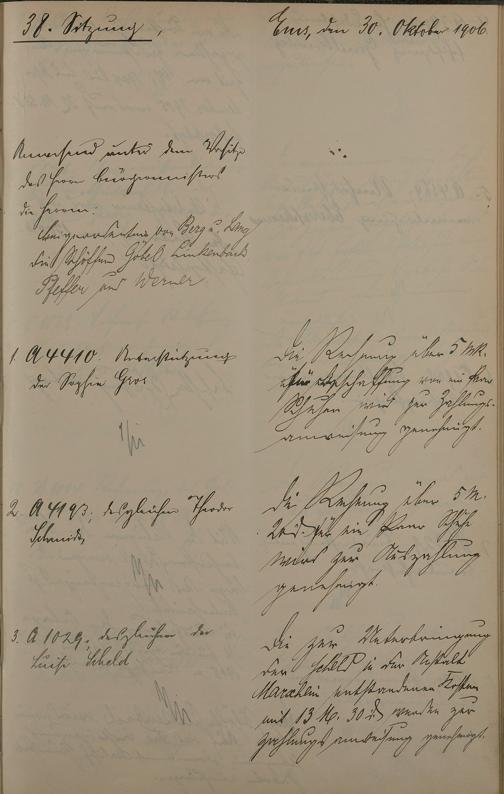 38. Sitzung,
Ems, den 30. Oktober 1906.
Anwesend unter dem Vorsitze
des Herrn Bürgermeisters
die Herren:
Beigeordneter von Berg u.
die Schöffen Göbel, Linkenbach
Pfeffer und Werner
1. A 4410. Unterstützung
der Sophie Gros
Die Rechnung über 5 Mk.
für Beschaffung von ein Paar
Schuhen wird zur Zahlungs-
anweisung genehmigt.
2. A 4193, desgleichen Theodor
Schmidt
Die Rechnung über 5 M.
20 d. für ein Paar Schuhe
wird zur Auszahlung
genehmigt.
3. A 1029, desgleichen der
Luise Scheld
Die zur Unterbringung
der Scheld in der Anstalt
entstandenen Kosten
mit 13 M. 30 d. werden zur
Zahlungsanweisung genehmigt.